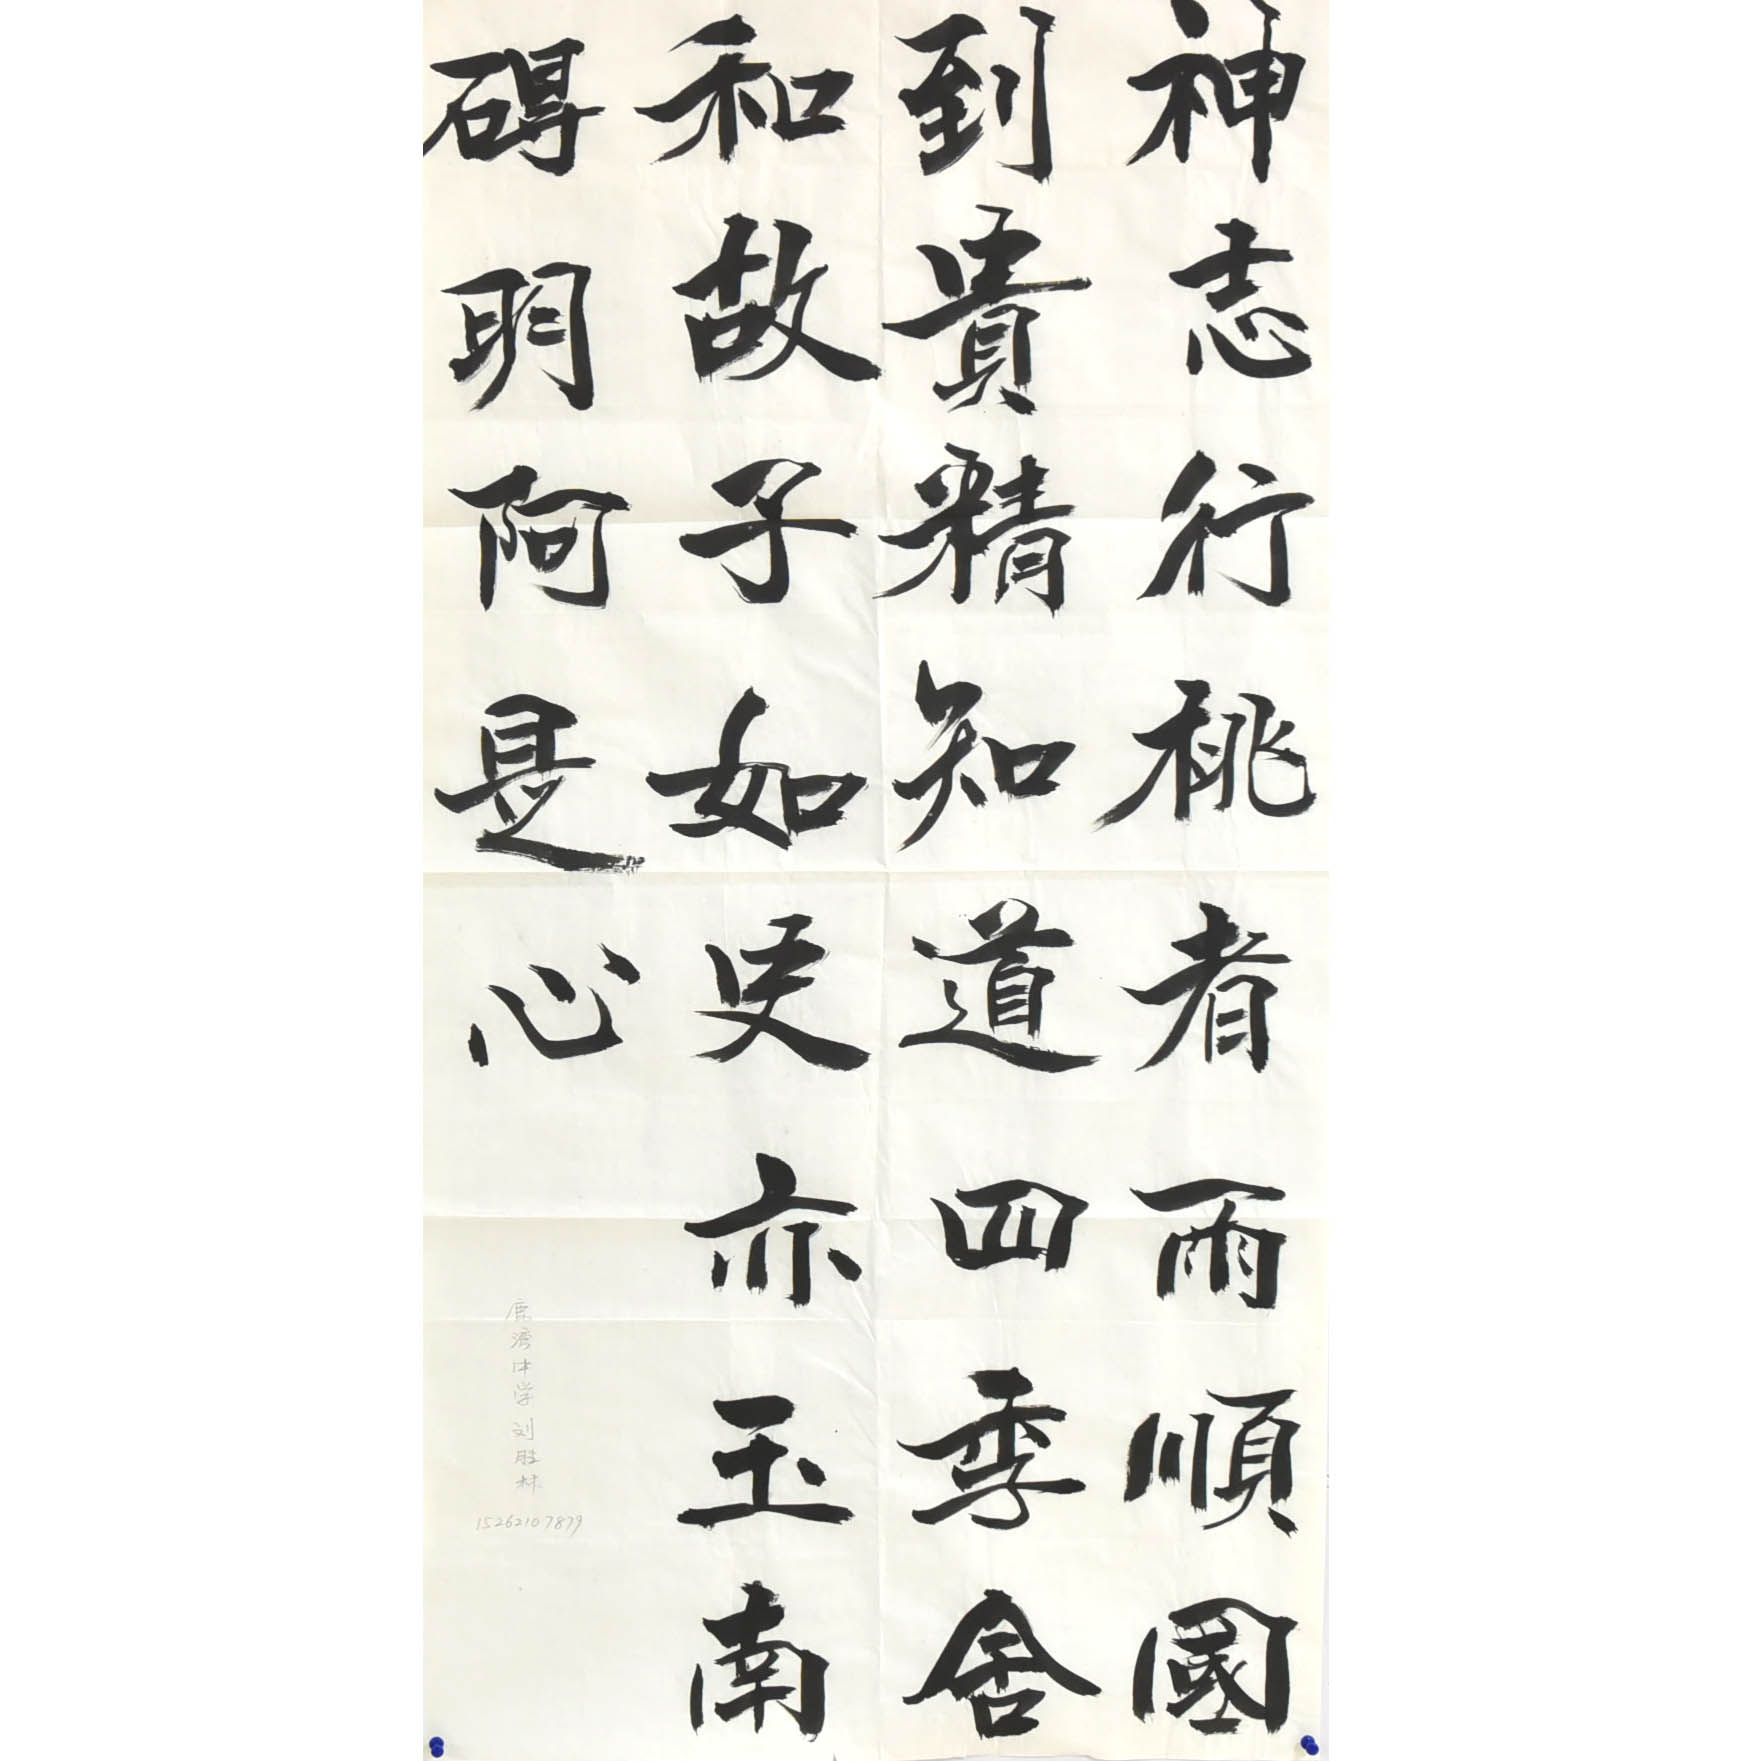 神志行桃者雨順國
到貴精知道四季舍
和故子如史亦玉南
碍明阿是心
鹿湾中学刘胜林
15262107879